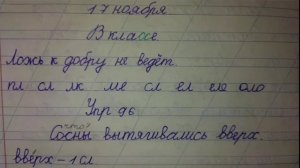 17 ноября
В классе
Ложь к добру не ведёт
пл сл лк ме сл ел ею оло
Упр 96
что?
Сосны вытягивались вверх.
вве́рх - 1 сл